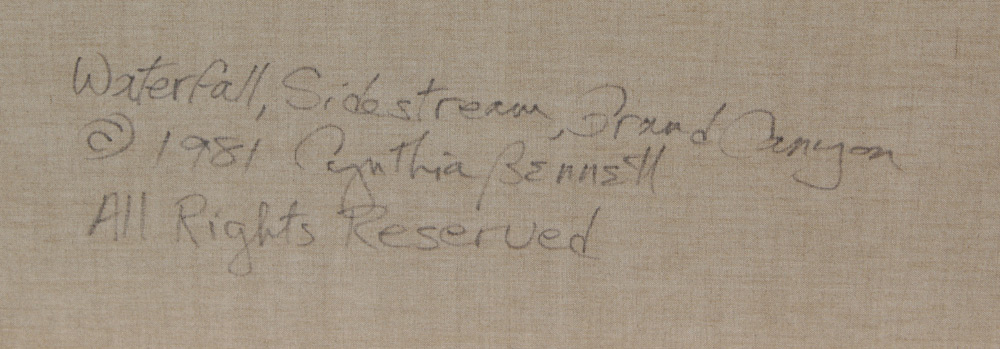 Waterfall, Sidestream, Grand Canyon
© 1981 Cynthia Bennett
All Rights Reserved